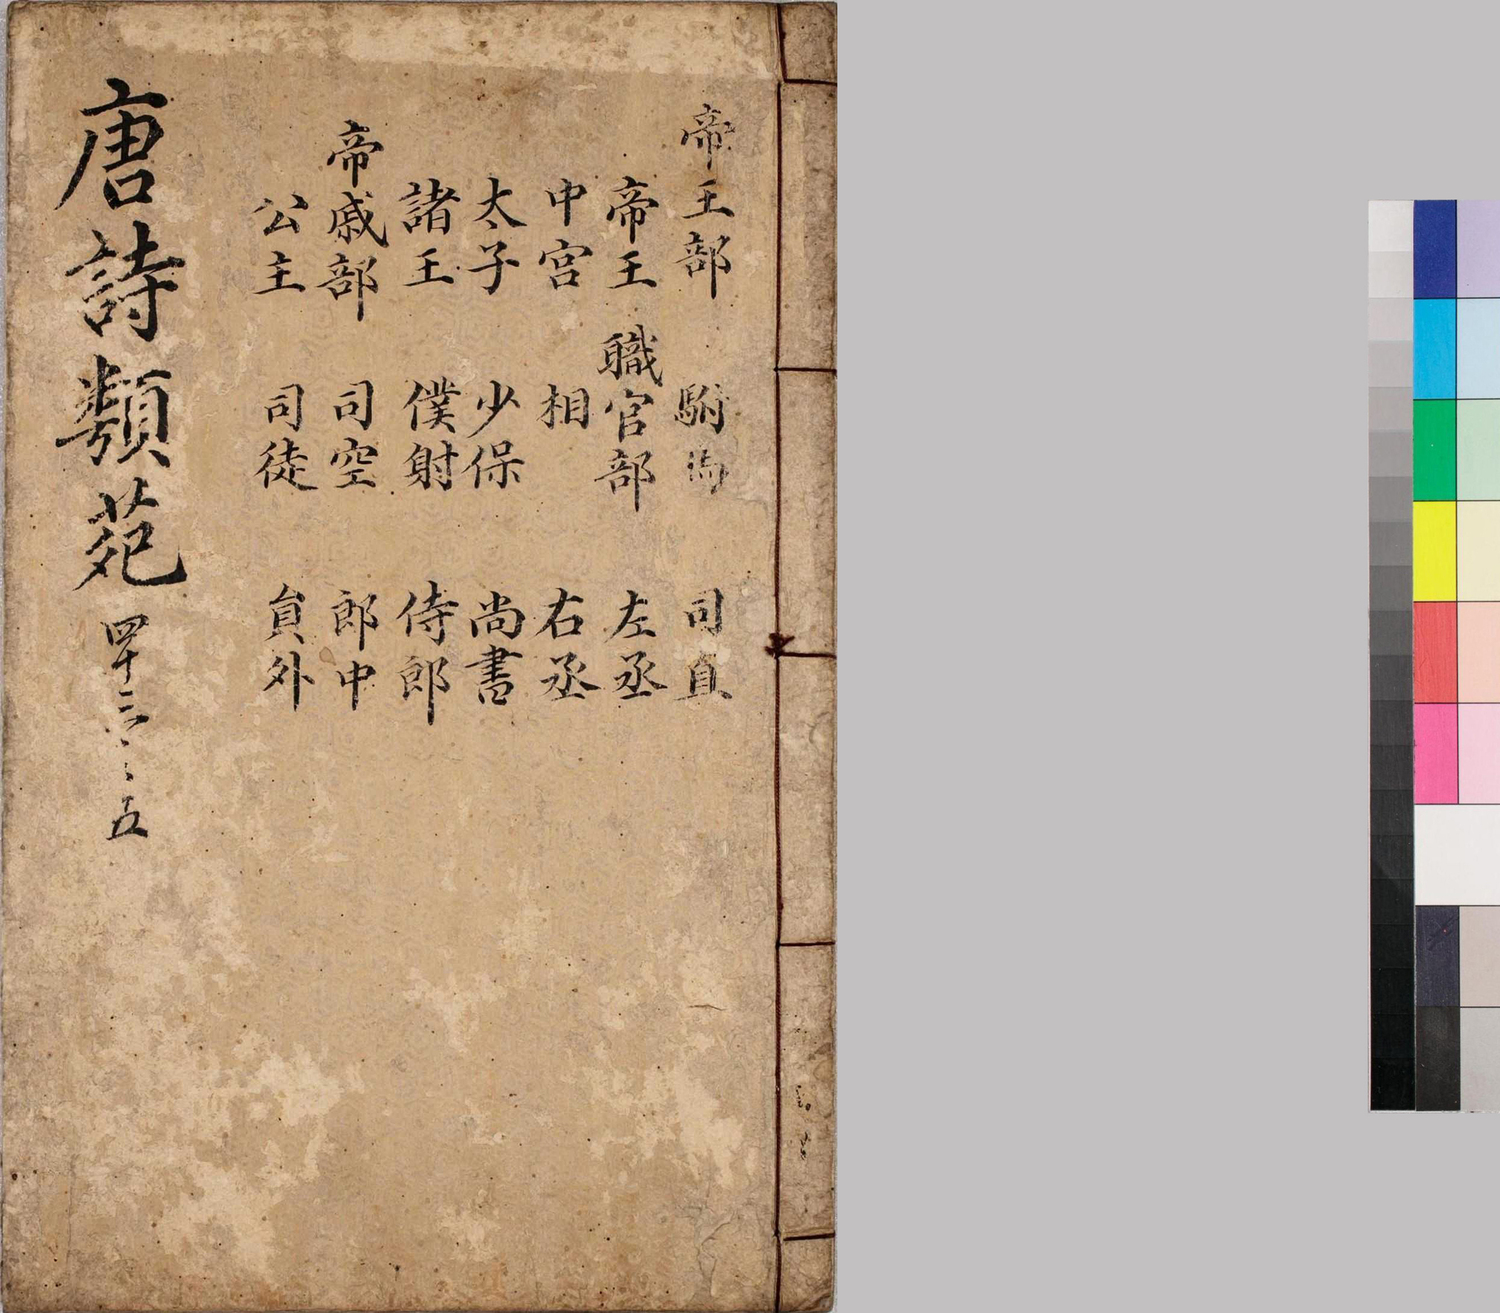 帝王部
帝王
中宮
太子
諸王
帝戚部
公主
駙馬
職官部
相
少保
僕射
司空
司徒
司直
左丞
右丞
尚書
侍郎
郎中
貟外
唐詩類苑
四十三
五